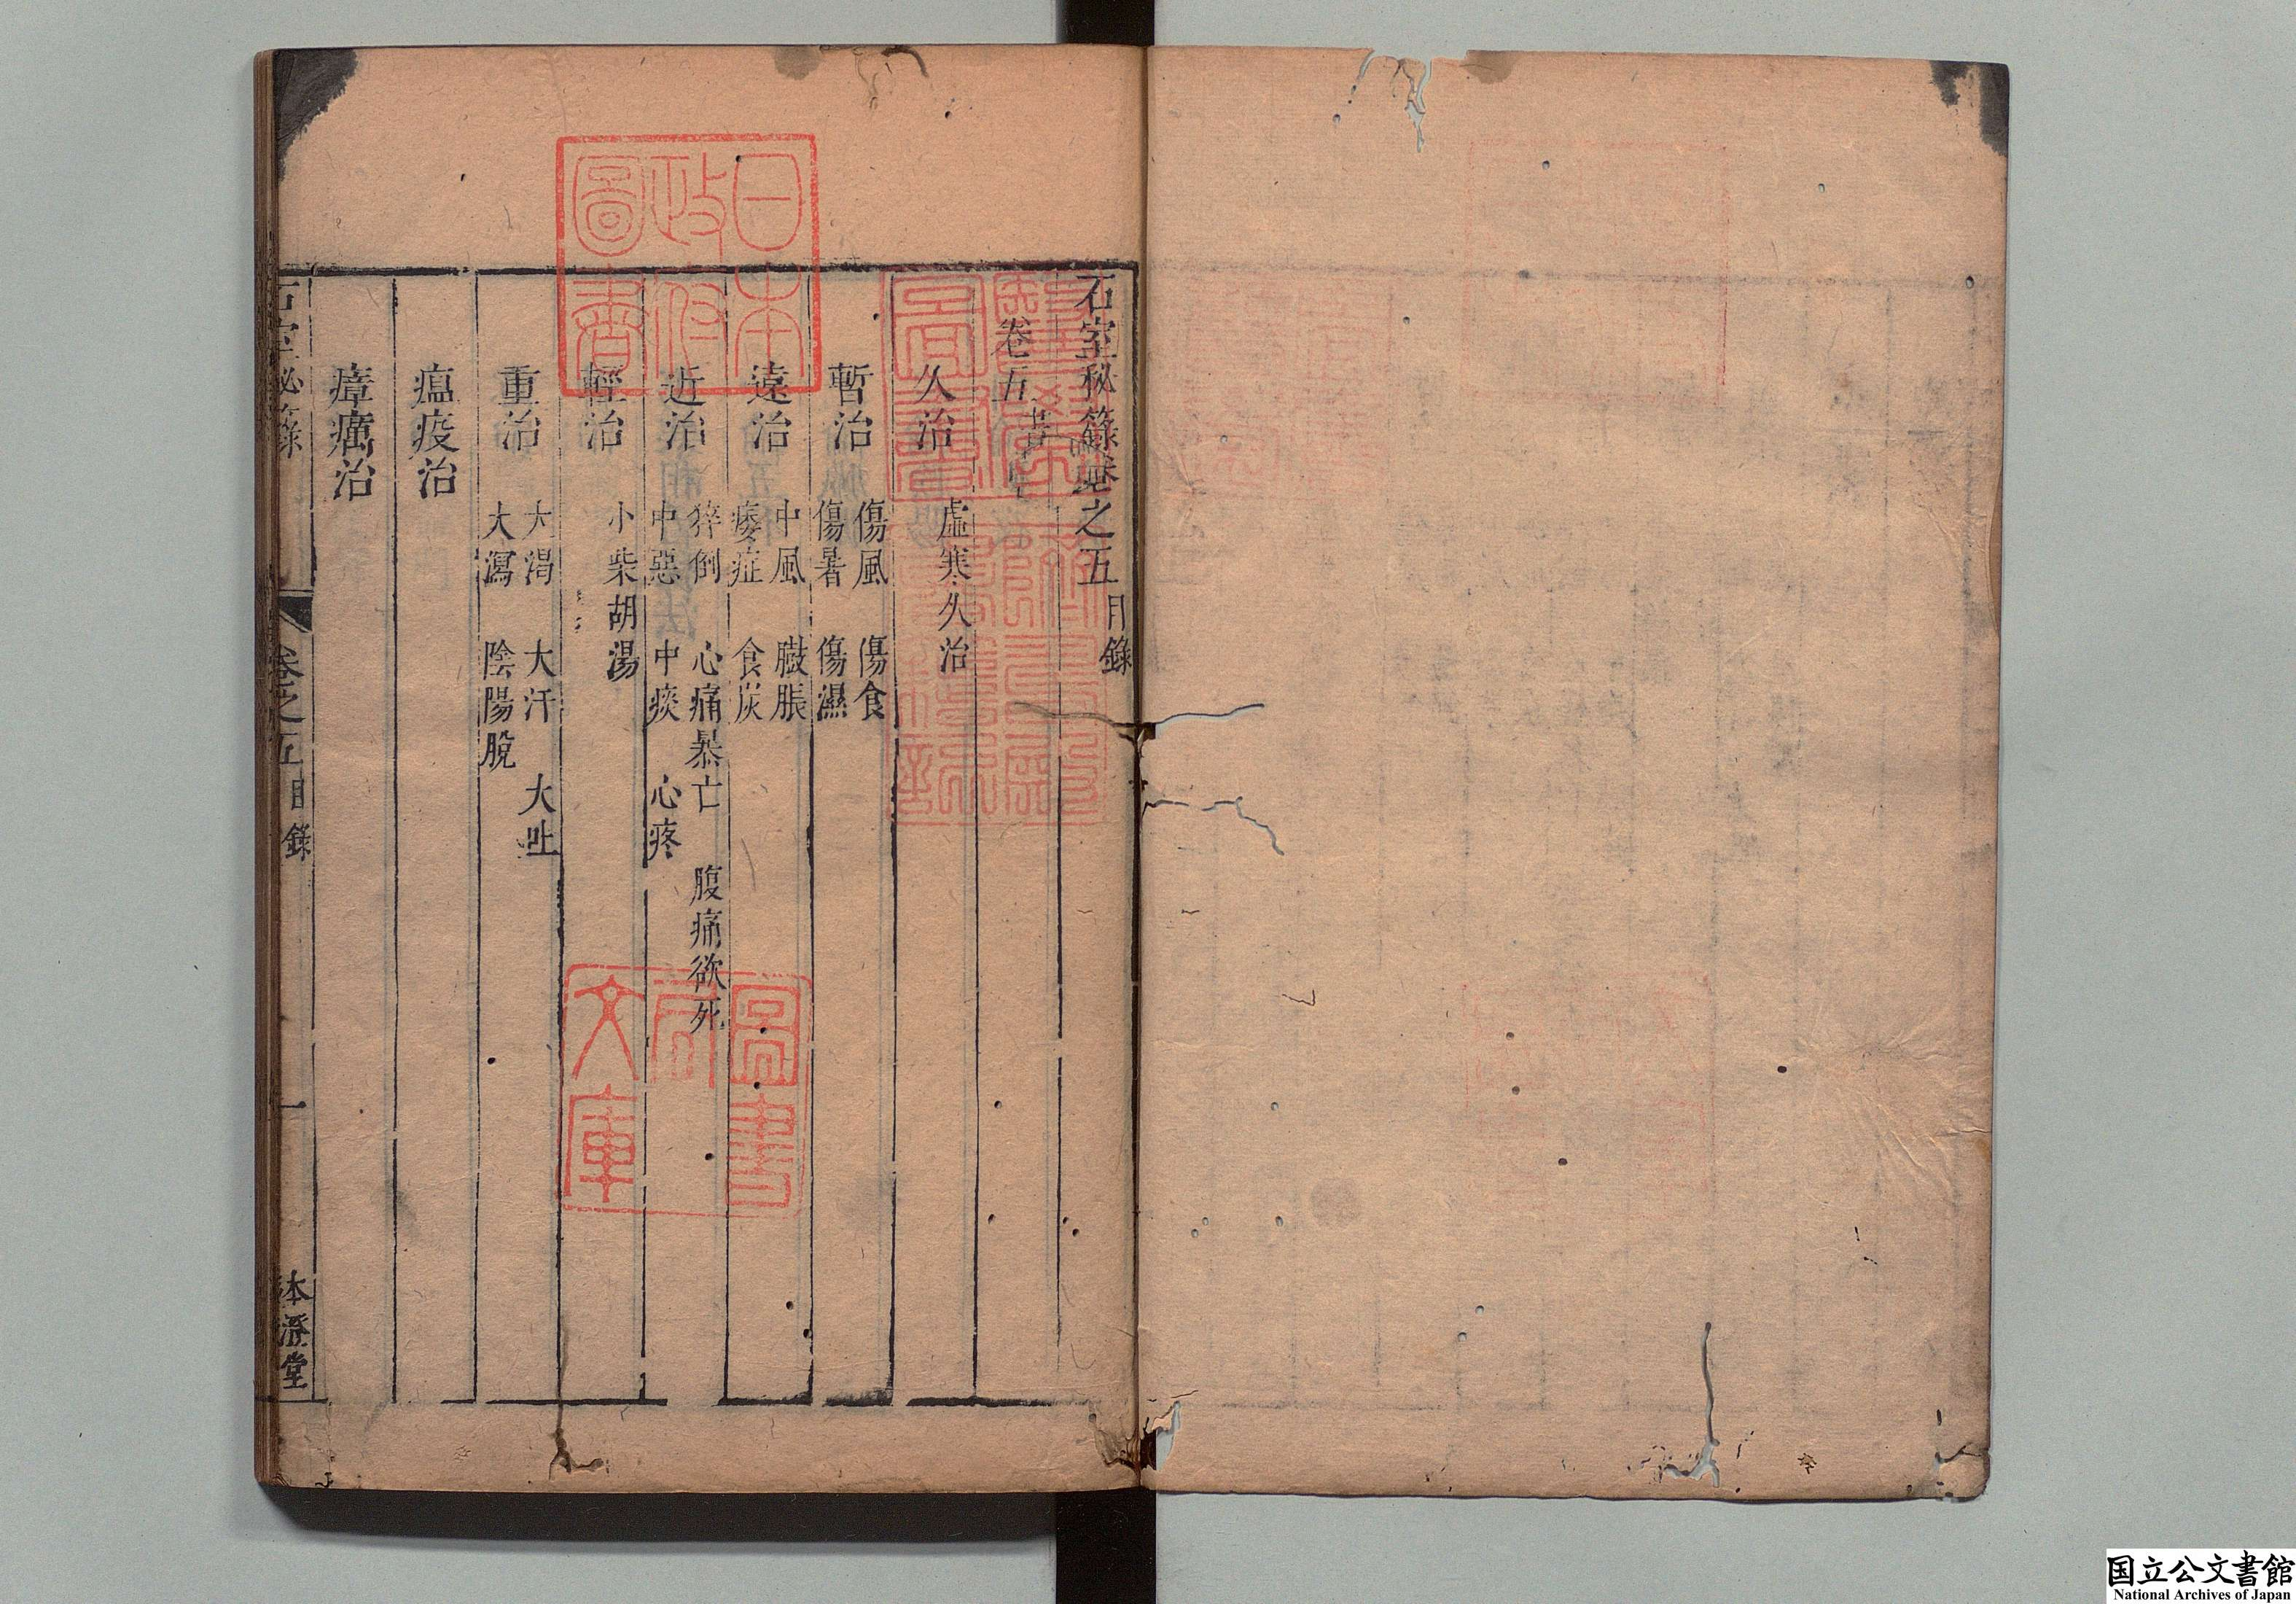 石室秘籙卷之五 目錄
卷五
久治 虛寒久治
暫治 傷風 傷食
傷暑 傷濕
遠治 中風 臌脹
痿症 食炭
近治 猝倒 心痛暴亡 腹痛欲死
中惡 中痰 心疼
輕治 小柴胡湯
重治 大渴 大汗 大吐
大瀉 陰陽脫
瘟疫治
瘴癘治
石室秘籙 卷之五 目錄 一 本澄堂
日本政府圖書
圖書局文庫
国立公文書館
National Archives of Japan